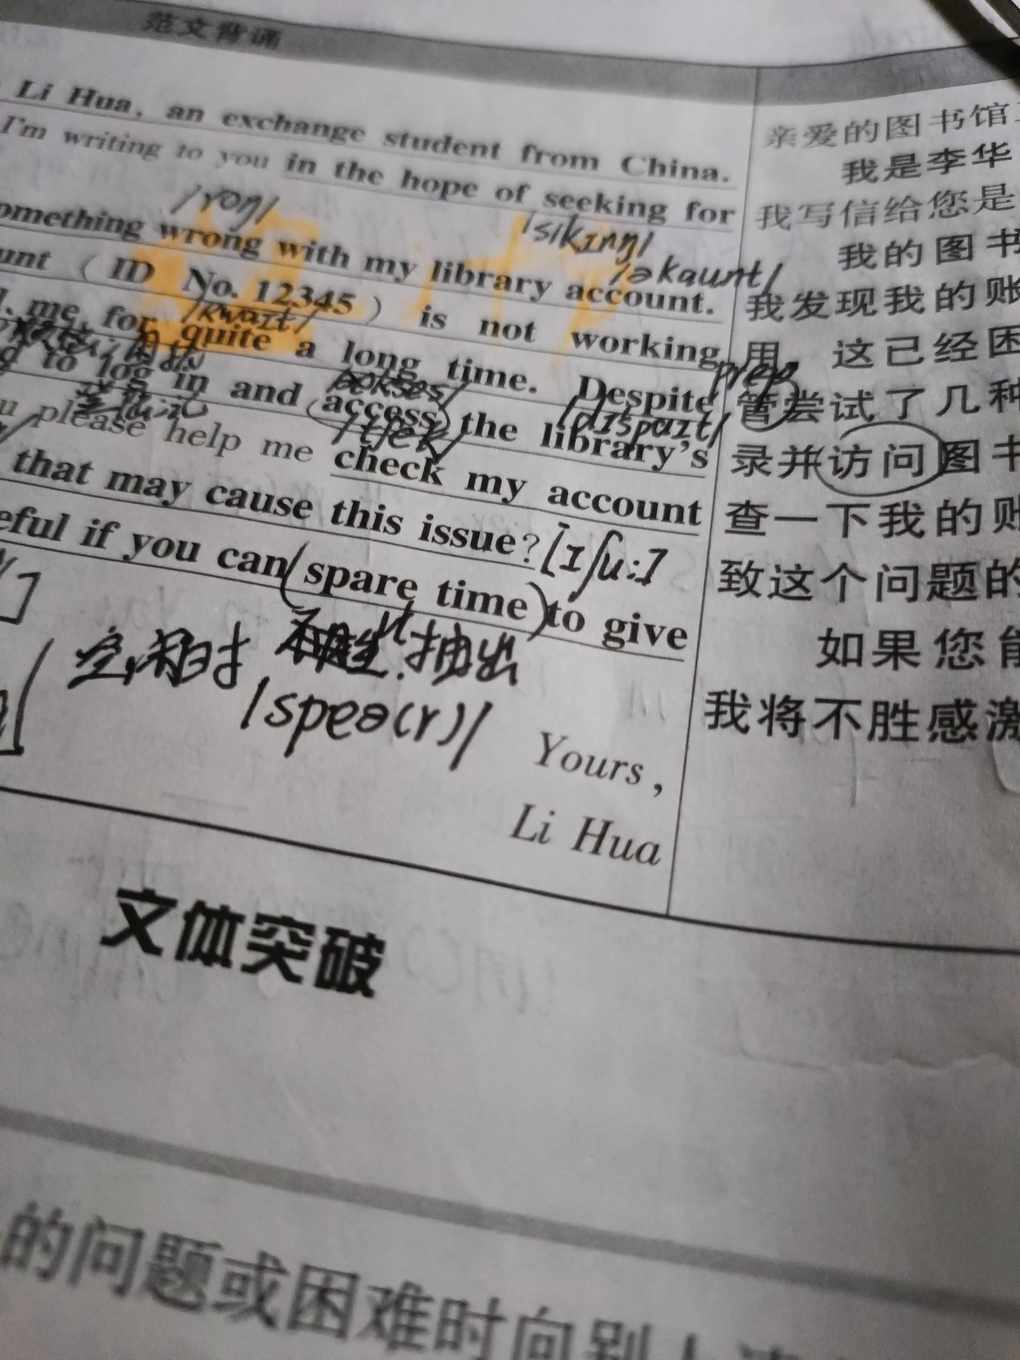 范文背诵
Li Hua, an exchange student from China.
I'm writing to you in the hope of seeking for
/rɒŋ/
/sikɪŋ/
something wrong with my library account.
/əkaunt/
(ID No. 12345) is not working
/kwaɪt/
me for quite a long time. Despite
prep
to log in and access the library's
/dɪspaɪt/
please help me check my account
/tʃek/
that may cause this issue? [ɪʃuː]
if you can (spare time) to give
空闲时 抽出
/speə(r)/
Yours,
Li Hua
亲爱的图书馆
我是李华
我写信给您是
我的图书
我发现我的账
用。这已经困
管尝试了几种
录并(访问)图书
查一下我的账
致这个问题的
如果您能
我将不胜感激
文体突破
的问题或困难时向别人